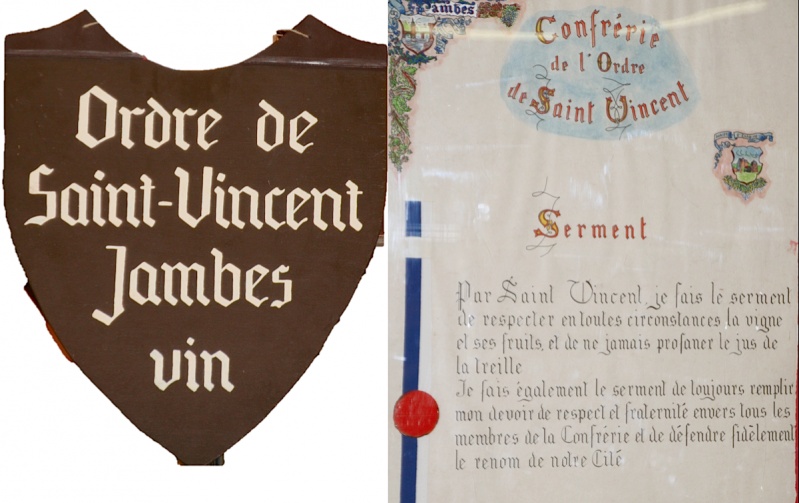 Ordre de
Saint-Vincent
Jambes
vin
Jambes
Confrérie
de l'Ordre
de Saint Vincent
Serment
Par Saint Vincent, je fais le serment
de respecter en toutes circonstances la vigne
et ses fruits, et de ne jamais profaner le jus de
la treille
Je fais également le serment de toujours remplir
mon devoir de respect et fraternité envers tous les
membres de la Confrérie et de défendre fidèlement
le renom de notre Cité